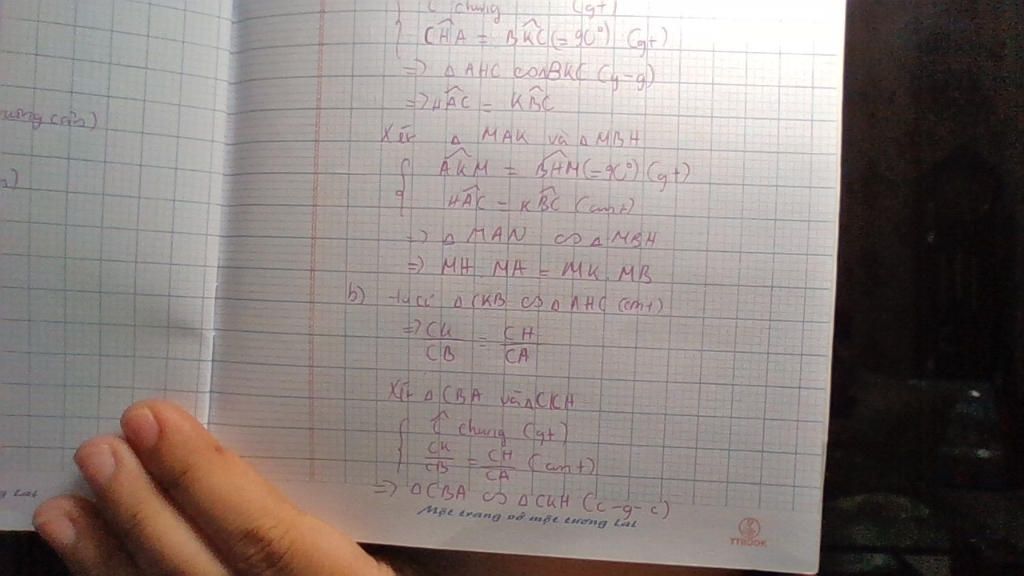 Ĉ chung (gt)
CĤA = BK̂C (= 90°) (gt)
=> △ AHC ∽ △BKC (g-g)
=> HÂC = KB̂C
Xét △ MAK và △ MBH
AK̂M = BĤM (= 90°) (gt)
HÂC = KB̂C (cmt)
=> △ MAN ∽ △ MBH
=> MH . MA = MK . MB
b) Ta có △CKB ∽ △ AHC (cmt)
=> CK/CB = CH/CA
Xét △ CBA và △CKH
Ĉ chung (gt)
CK/CB = CH/CA (cmt)
=> △CBA ∽ △CKH (c-g-c)
Một trang vở một tương lai
TTBOOK